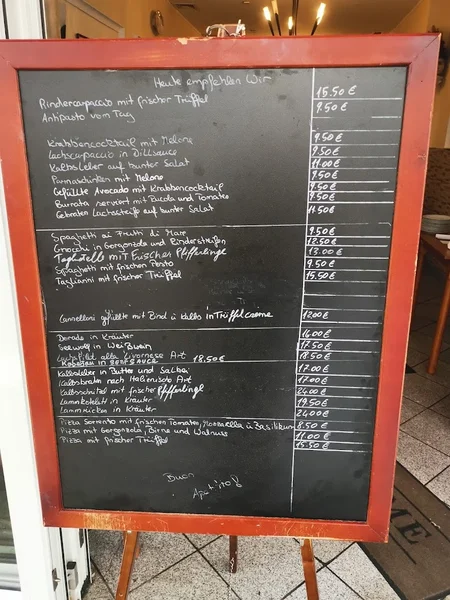 Heute empfehlen Wir
Rindercarpaccio mit frischer Trüffel 15.50 €
Antipasto vom Tag 9.50 €
Krabbencocktail mit Melone 9.50 €
Lachscarpaccio in Dillsauce 9.50 €
Kalbsleber auf bunter Salat 11.00 €
Parmaschinken mit Melone 9.50 €
Gefüllte Avocado mit Krabbencocktail 9.50 €
Burrata serviert mit Rucola und Tomaten 9.50 €
Gebraten Lachsstreifs auf bunter Salat 11.50 €
Spaghetti ai Frutti di Mare 9.50 €
Gnocchi in Gorgonzola und Rinderstreifen 12.50 €
Tagliatelle mit Frischer Pfifferlinge 13.00 €
Spaghetti mit frischen Pesto 9.50 €
Tagliarini mit frischer Trüffel 15.50 €
Cannelloni gefüllte mit Rind u Kalbs in Trüffelcreme 12.00 €
Dorade in Kräuter 16.00 €
Seewolf in Weißwein 17.50 €
Lachsfilet alla Livornese Art 18.50 €
Kabeljau in Senfsauce 18.50 €
Kalbsleber in Butter und Salbei 17.00 €
Kalbsbraten nach Italienische Art 17.00 €
Kalbsschnitzel mit frische Pfifferlinge 24.00 €
Lammkotelett in Kräuter 19.50 €
Lammrücken in Kräuter 24.00 €
Pizza Sorrento mit frischen Tomaten, Mozzarella u Basilikum 8.50 €
Pizza mit Gorgonzola, Birne und Walnuss 11.00 €
Pizza mit frischer Trüffel 15.50 €
Buon
Apetito!